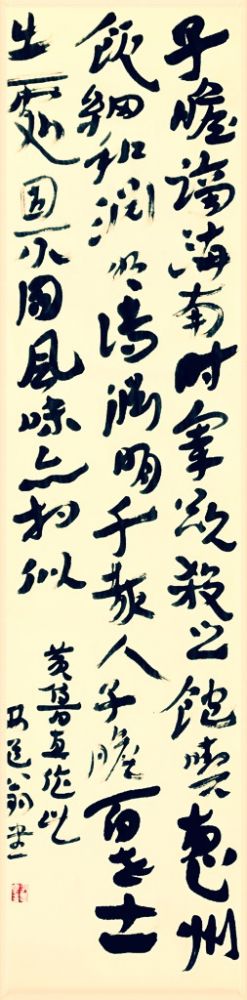 子瞻謫海南时宰欲殺之飽喫惠州
飯細和淵明詩淵明千載人子瞻百世士
出處固不同風味亦相似
黄魯直
翁書